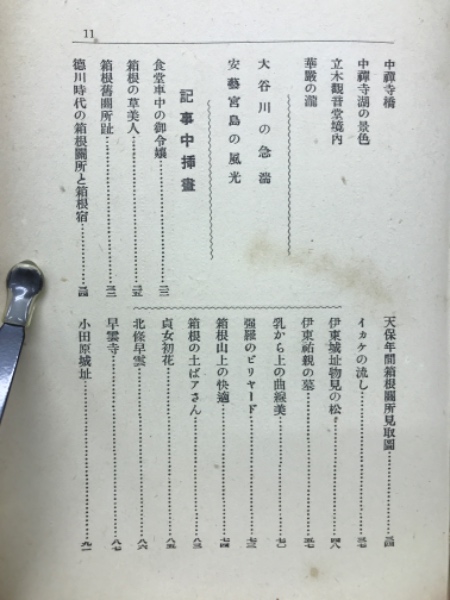 11
中禪寺橋
中禪寺湖の景色
立木觀音堂境內
華嚴の瀧
大谷川の急湍
安藝宮島の風光
記事中挿畫
食堂車中の御令孃
箱根の草美人
箱根舊關所趾
德川時代の箱根關所と箱根宿
天保年間箱根關所見取圖
イカケの流し
伊東城址物見の松
伊東祐親の墓
乳から上の曲線美 七〇
强羅のビリヤード
箱根山上の快適 七四
箱根の土ばアさん 八三
貞女初花 八五
北條早雲 八六
早雲寺 八七
小田原城址 九一